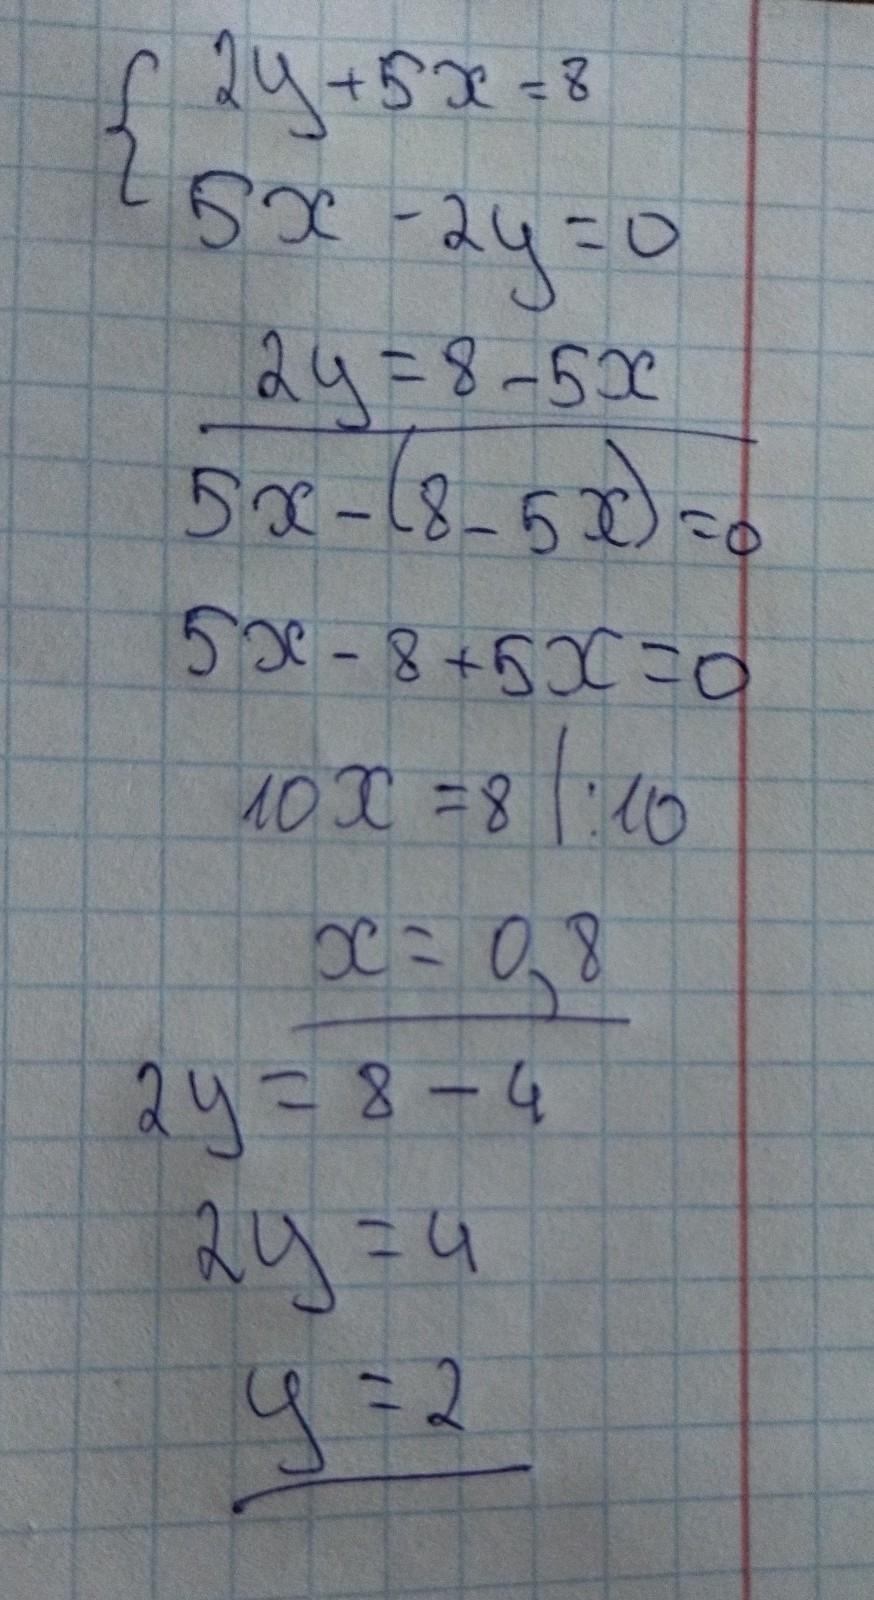 { 2y + 5x = 8
5x - 2y = 0
2y = 8 - 5x
5x - (8 - 5x) = 0
5x - 8 + 5x = 0
10x = 8 |:10
x = 0,8
2y = 8 - 4
2y = 4
y = 2